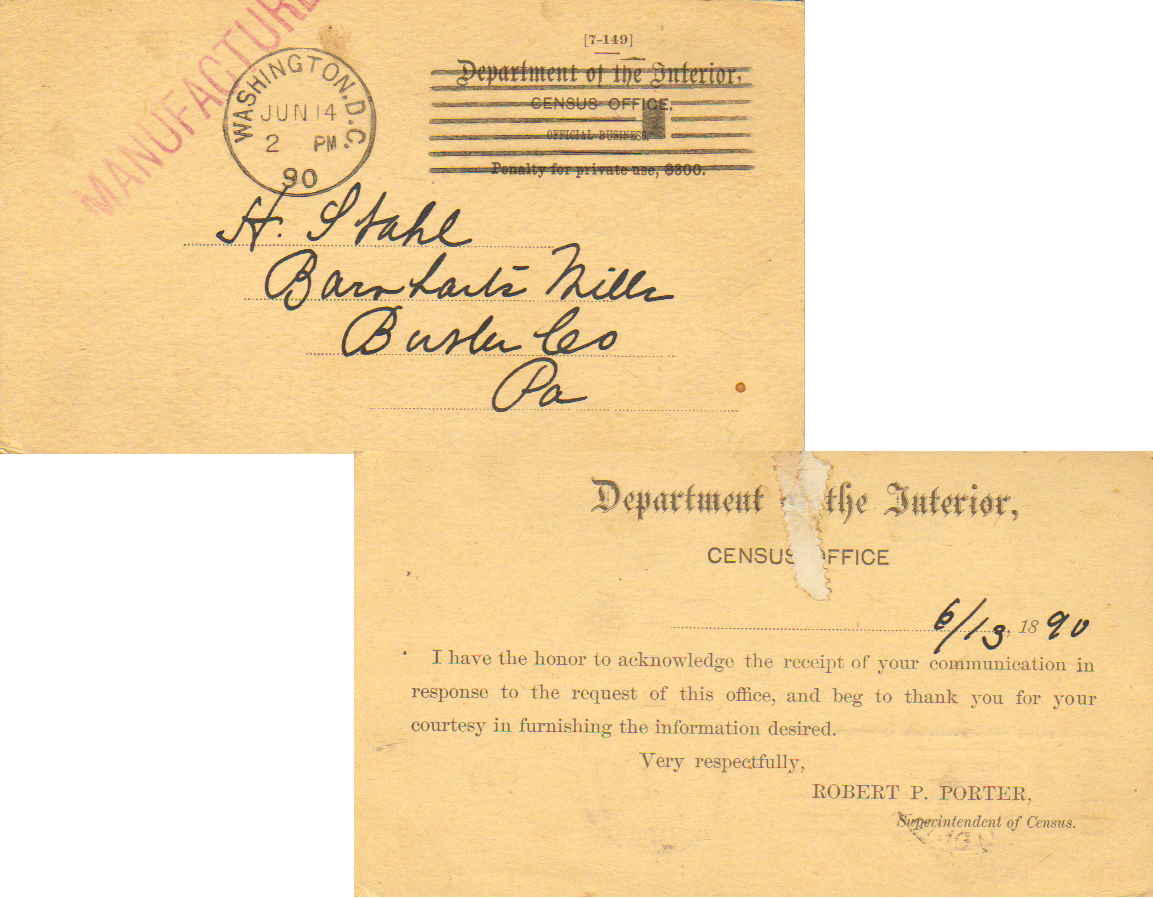 MANUFACTURE
WASHINGTON, D.C.
JUN 14
2 PM
90
[7-149]
Department of the Interior,
CENSUS OFFICE.
OFFICIAL BUSINESS.
Penalty for private use, $300.
H. Stahl
Barnharts Mills
Butler Co
Pa
Department the Interior,
CENSUS OFFICE
6/13, 1890
I have the honor to acknowledge the receipt of your communication in
response to the request of this office, and beg to thank you for your
courtesy in furnishing the information desired.
Very respectfully,
ROBERT P. PORTER,
Superintendent of Census.